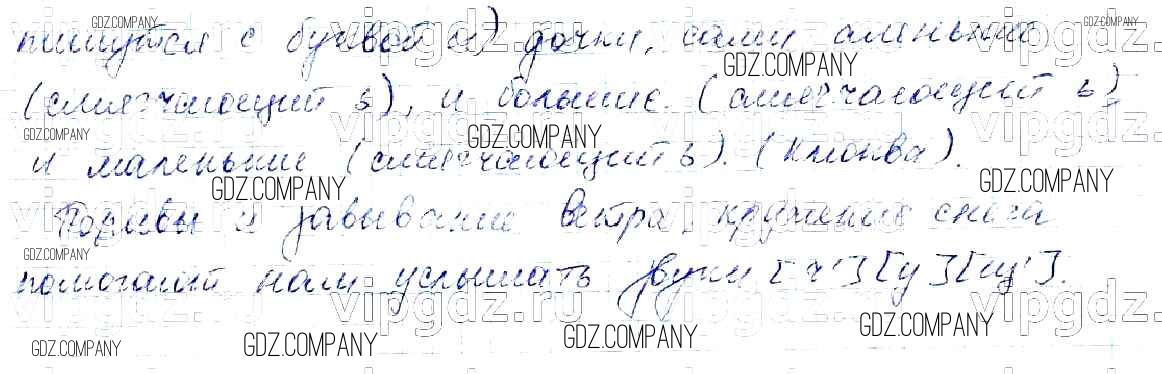 пишутся с буквой и) дочки, сами
(смягчающий ь), и большие (смягчающий ь)
и маленькие (смягчающий ь). (клюква).
Порывы и завывание ветра, кружение снега
помогают нам услышать звуки [ч'] [у] [щ'].
GDZ.COMPANY
GDZ.COMPANY
GDZ.COMPANY
GDZ.COMPANY
GDZ.COMPANY
GDZ.COMPANY
GDZ.COMPANY
GDZ.COMPANY
GDZ.COMPANY
GDZ.COMPANY
GDZ.COMPANY
GDZ.COMPANY
vipgdz.ru